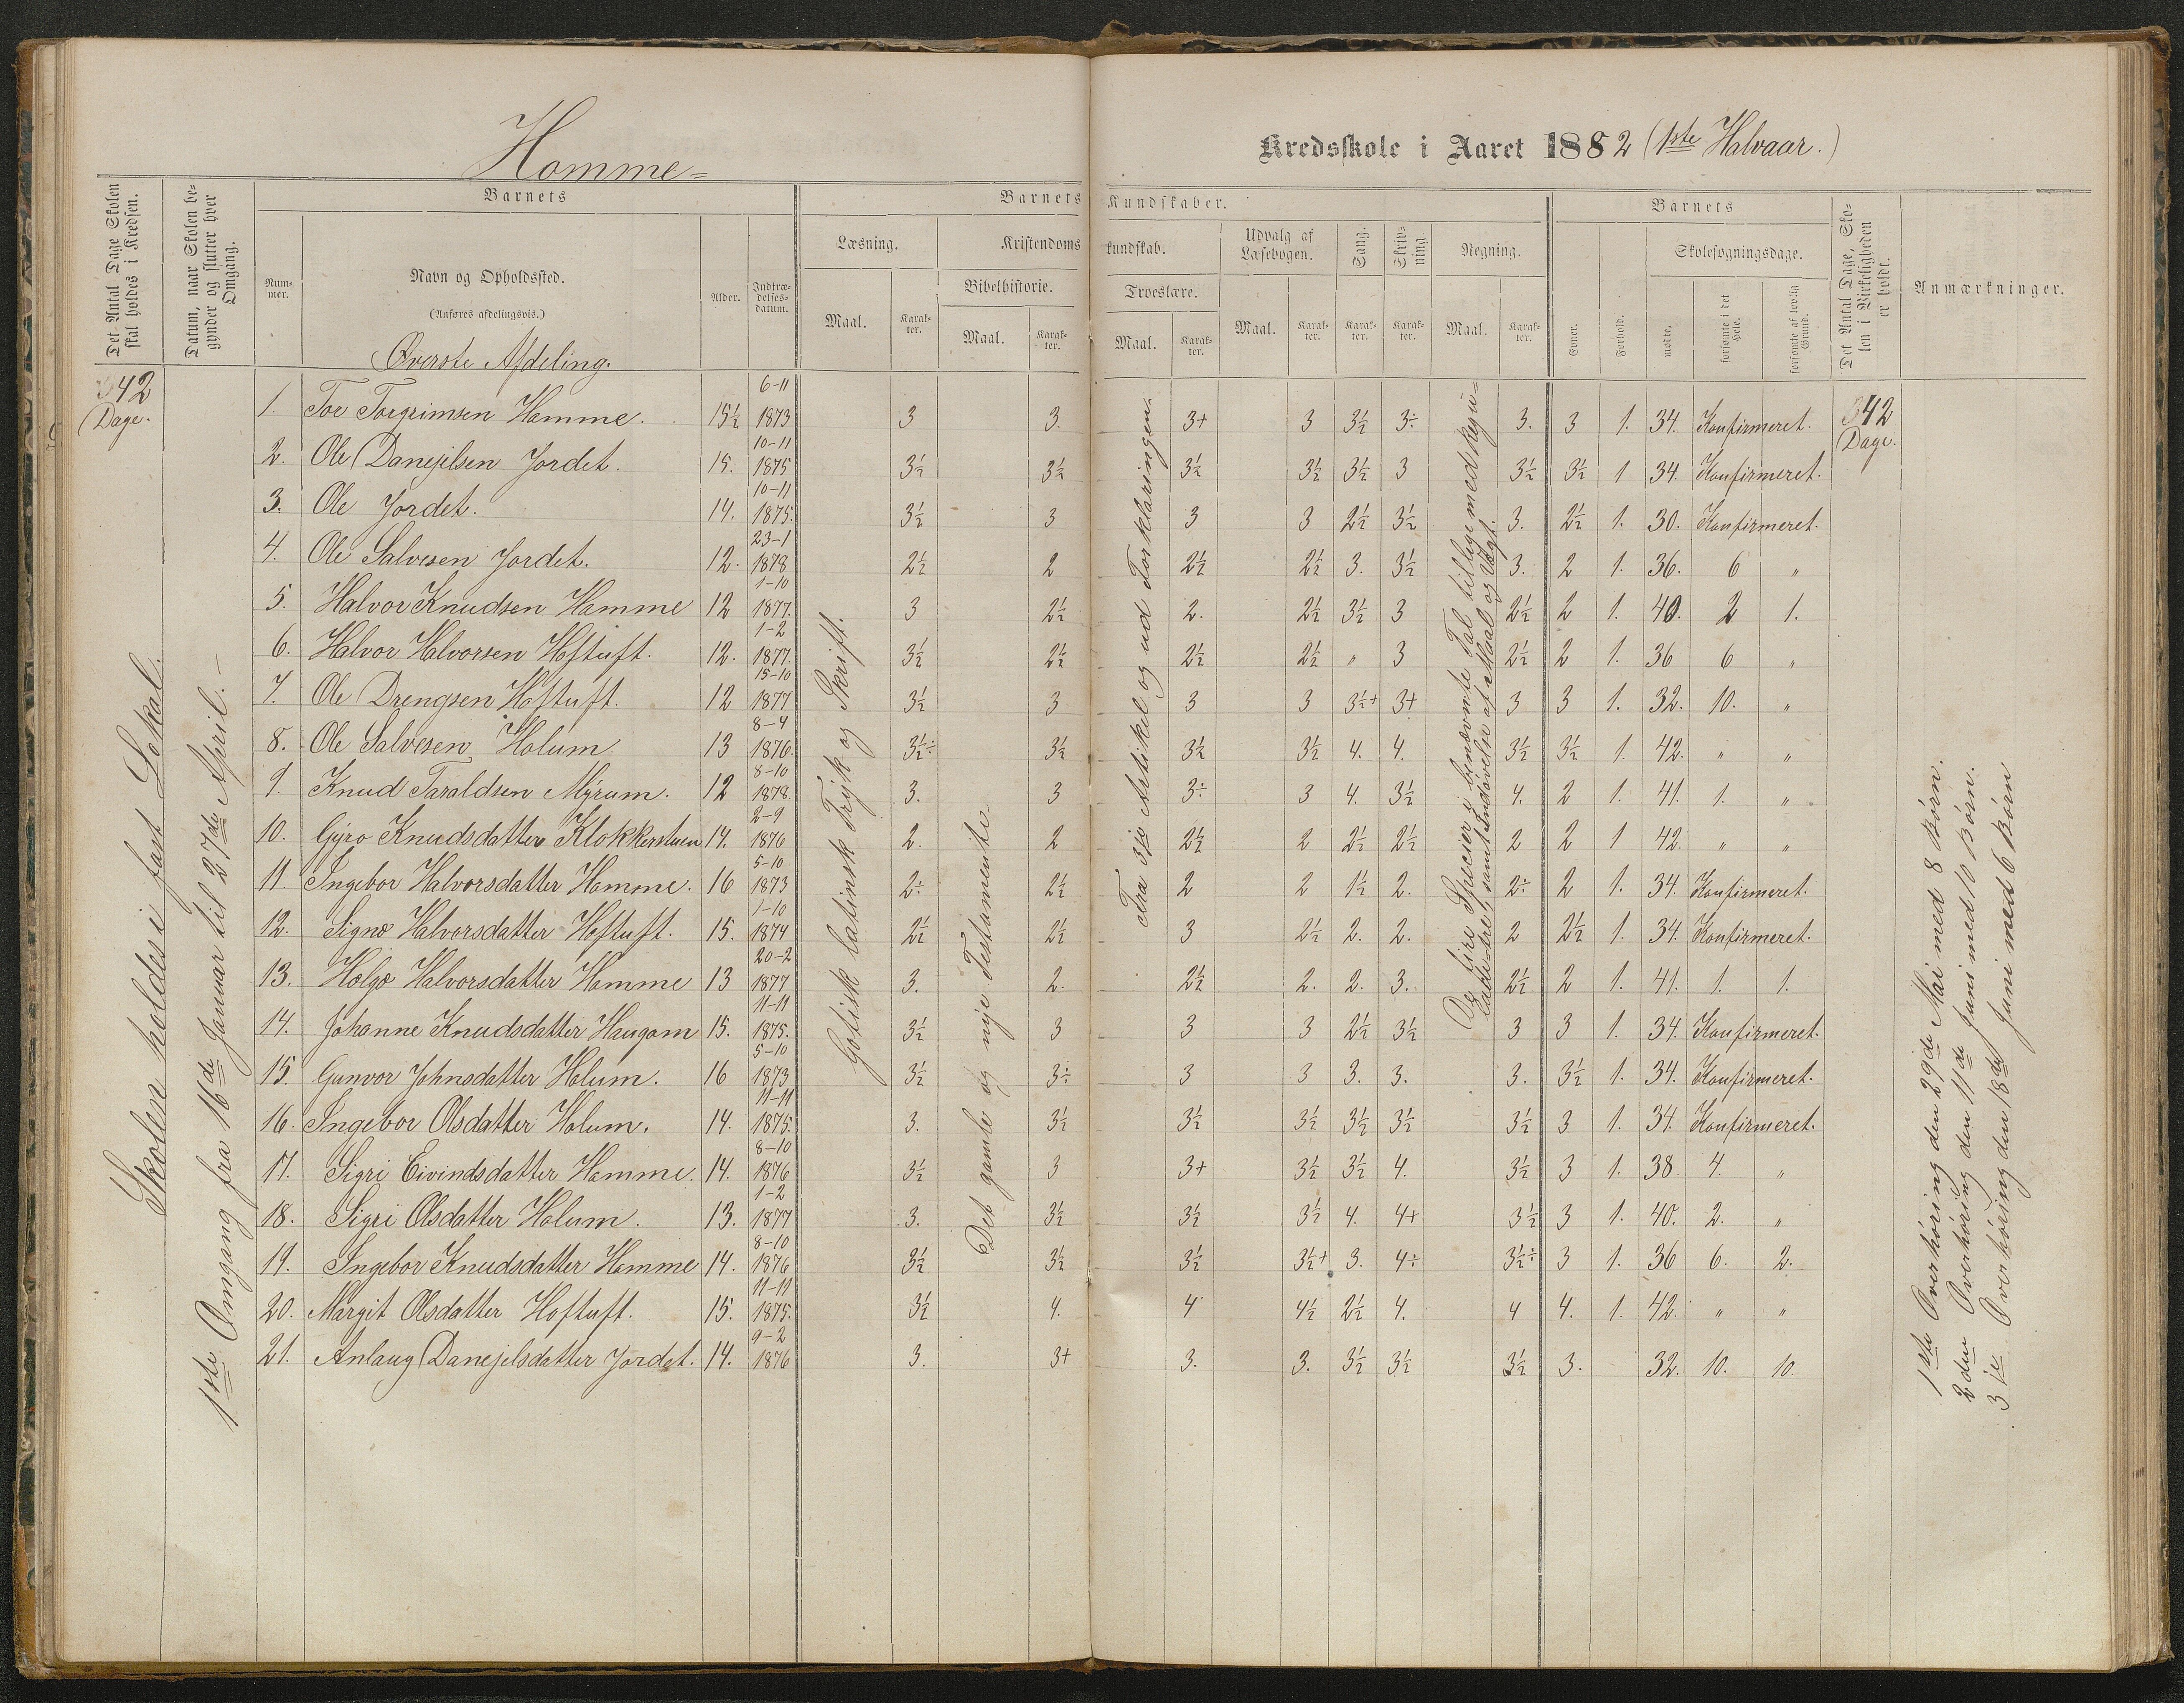 Homme-
Kredsskole i Aaret 1882 (1ste Halvaar.)
Det Antal Dage Skolen skal holdes i Kredsen.
Datum, naar Skolen begynder og slutter hver Omgang.
Barnets
Nummer.
Navn og Opholdssted.
(Anføres afdelingsvis.)
Øverste Afdeling.
Alder.
Indtrædelsesdatum.
Barnets Kundskaber.
Læsning.
Maal.
Karakter.
Kristendomskundskab.
Bibelhistorie.
Maal.
Karakter.
Troeslære.
Maal.
Karakter.
Udvalg af Læsebogen.
Maal.
Karakter.
Sang.
Karakter.
Skrivning
Karakter.
Regning.
Maal.
Karakter.
Barnets
Evner.
Forhold.
Skolesøgningsdage.
mødte.
forsømte i det Hele.
forsømte af lovlig Grund.
Det Antal Dage, Skolen i Virkeligheden er holdt.
Anmærkninger.
42 Dage.
Skolen holdes i fast Lokal.
1ste Omgang fra 16de Januar til 27de April.-
Gotisk latinsk Tryk og Skrift.
Det gamle og nye Testamente.
Fra 3die Artikel og ud Forklaringen.
De fire Specier i benævnte Tal tillige med
samt Indøvelse af Maal og Vægt.
42 Dage.
1. Tor Torgrimsen Homme. 15½ 6-11 1873 3 3. 3+ 3 3½ 3÷ 3. 3 1. 34. Konfirmeret.
2. Ole Danejelsen Jordet. 15. 10-11 1875 3½ 3½ 3½ 3½ 3½ 3 3½ 3½ 1 34. Konfirmeret.
3. Ole Jordet. 14. 10-11 1875. 3½ 3 3 3 2½ 3½ 3. 2½ 1. 30. Konfirmeret.
4. Ole Salvesen Jordet. 12. 23-1 1878 2½ 2 2½ 2½ 3. 3½ 3. 2 1. 36. 6 "
5. Halvor Knudsen Homme 12 1-10 1877. 3 2½ 2. 2½ 3½ 3 2½ 2 1. 40. 2 1.
6. Halvor Halvorsen Hoftuft. 12. 1-2 1877. 3½ 2½ 2½ 2½ " 3 2½ 2 1. 36 6 "
7. Ole Drengsen Hoftuft. 12 15-10 1877 3½ 3 3 3 3½+ 3+ 3 3 1. 32. 10. "
8. Ole Salvesen Holum. 13 8-4 1876. 3½÷ 3½ 3½ 3½ 4. 4. 3½ 3½ 1. 42. " "
9. Knud Taraldsen Myrum. 12 8-10 1878. 3. 3 3÷ 3 4. 3½ 4. 2 1. 41. 1. "
10. Gyro Knudsdatter Klokkerstuen 14. 2-9 1876 2. 2 2½ 2 2½ 2½ 2 2 1 42. " "
11. Ingebor Halvorsdatter Homme. 16 5-10 1873 2÷ 2½ 2 2 1½ 2. 2÷ 2 1. 34. Konfirmeret.
12. Signe Halvorsdatter Hoftuft. 15. 1-10 1874 2½ 2½ 3 2½ 2. 2. 2 2½ 1. 34. Konfirmeret.
13. Helge Halvorsdatter Homme 13 20-2 1877 3. 2. 2½ 2. 2. 3. 2½ 2 1. 41. 1. 1.
14. Johanne Knudsdatter Haugom 15. 11-11 1875. 3½ 3 3 3 2½ 3½ 3 3 1. 34. Konfirmeret.
15. Gunvor Johnsdatter Holum. 16 5-10 1873 3½ 3÷ 3 3 3. 3. 3. 3½ 1. 34. Konfirmeret.
16. Ingebor Olsdatter Holum. 14. 11-11 1875. 3. 3½ 3½ 3½ 3½ 3½ 3½ 3 1. 34. Konfirmeret.
17. Sigri Eivindsdatter Homme. 14. 8-10 1876 3½ 3 3+ 3½ 3½ 4. 3½ 3 1. 38. 4. "
18. Sigri Olsdatter Holum. 13. 1-2 1877 3. 3½ 3½ 3½ 4. 4+ 3½ 3 1. 40. 2. "
19. Ingebor Knudsdatter Homme 14. 8-10 1876 3½ 3½ 3½ 3½+ 3. 4÷ 3½÷ 3 1. 36 6. 2.
20. Margit Olsdatter Hoftuft. 15. 11-11 1875. 3½ 4. 4 4½ 2½ 4. 4 4. 1. 42. " "
21. Anlaug Danejelsdatter Jordet. 14. 9-2 1876 3. 3+ 3. 3. 3½ 3½ 3½ 3. 32. 10. 10.
1ste Overhøring den 29de Mai med 8 Børn.
2den Overhøring den 11de Juni med 10 Børn.
3die Overhøring den 18de Juni med 6 Børn